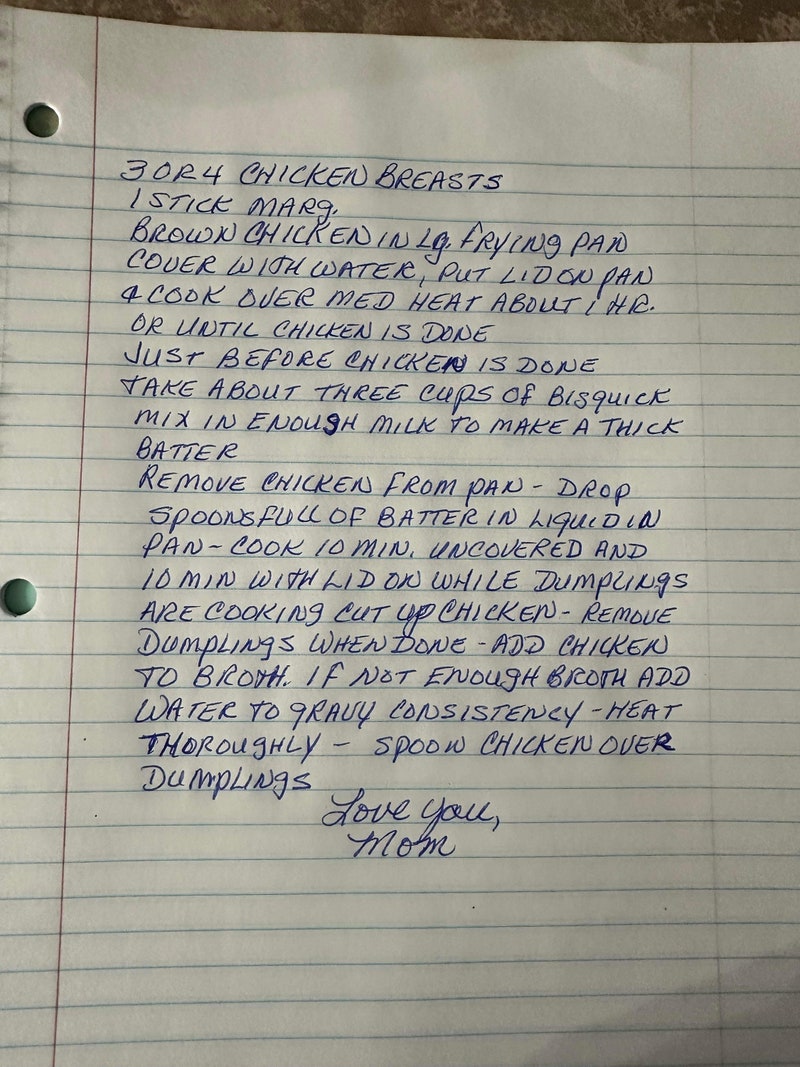 3 OR 4 CHICKEN BREASTS
1 STICK MARG.
BROWN CHICKEN IN Lg. FRYINg PAN
COVER WITH WATER, PUT LID ON PAN
& COOK OVER MED HEAT ABOUT 1 HR.
OR UNTIL CHICKEN IS DONE
JUST BEFORE CHICKEN IS DONE
TAKE ABOUT THREE CUPS OF BISQUICK
MIX IN ENOUGH MILK TO MAKE A THICK
BATTER
REMOVE CHICKEN FROM PAN - DROP
SPOONSFULL OF BATTER IN LIQUID IN
PAN - COOK 10 MIN. UNCOVERED AND
10 MIN WITH LID ON WHILE DUMPLINGS
ARE COOKING CUT UP CHICKEN - REMOVE
DUMPLINGS WHEN DONE - ADD CHICKEN
TO BROTH. IF NOT ENOUGH BROTH ADD
WATER TO GRAVY CONSISTENCY - HEAT
THOROUGHLY - SPOON CHICKEN OVER
DUMPLINGS
Love you,
Mom